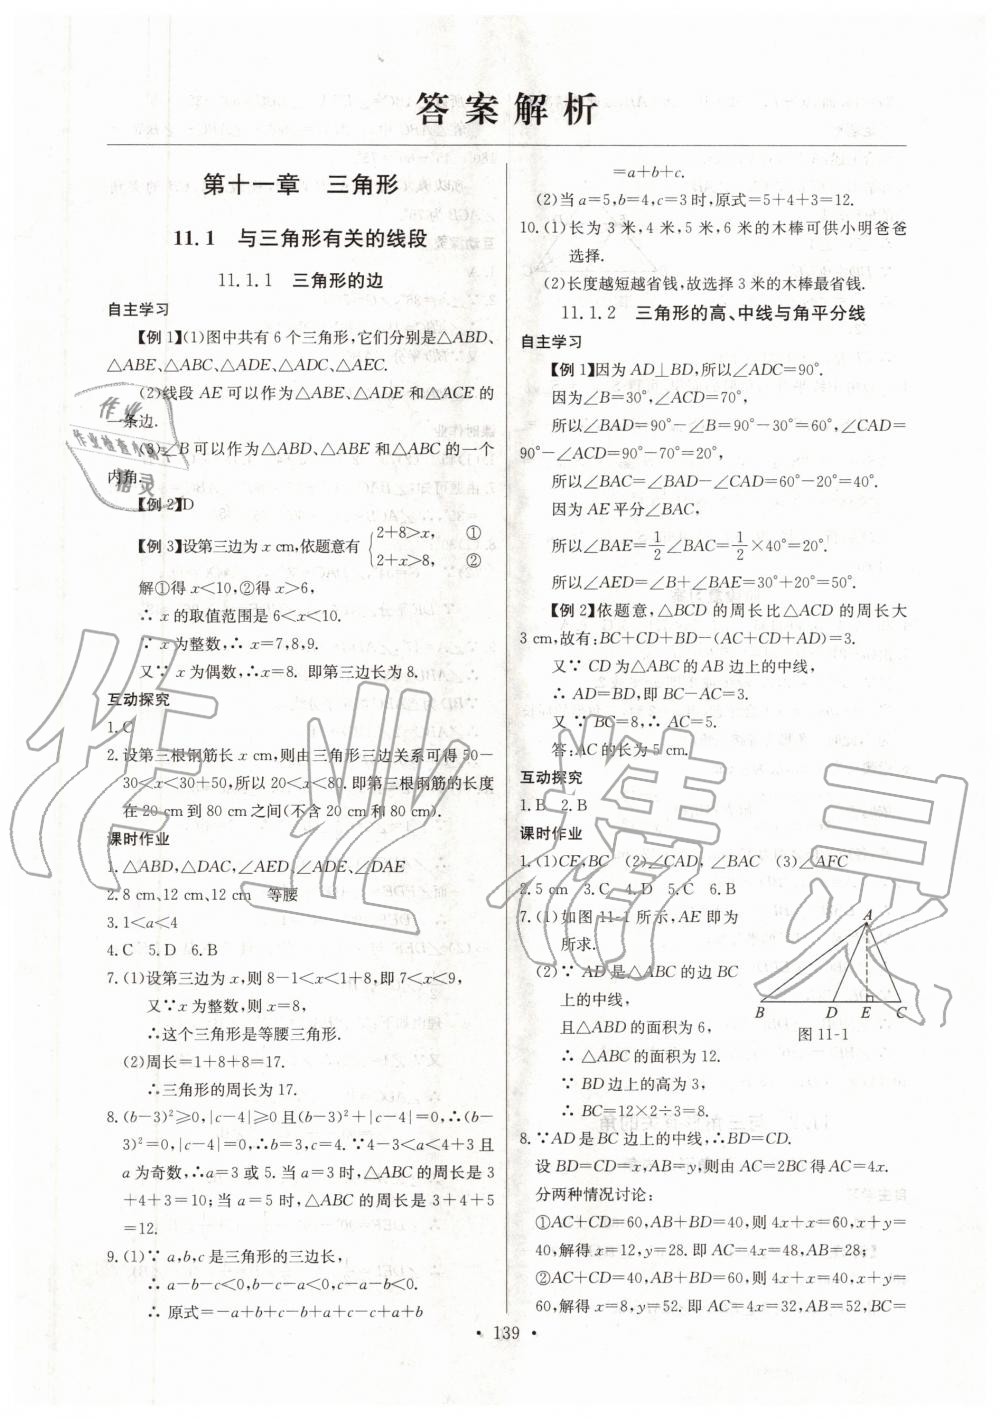 答案解析
第十一章 三角形
11.1 与三角形有关的线段
11.1.1 三角形的边
自主学习
【例 1】(1)图中共有 6 个三角形,它们分别是△ABD、
△ABE、△ABC、△ADE、△ADC、△AEC.
(2)线段 AE 可以作为△ABE、△ADE 和△ACE 的
一条边.
(3)∠B 可以作为△ABD、△ABE 和△ABC 的一个
内角.
【例 2】D
【例 3】设第三边为 x cm,依题意有 {2+8>x, ①
2+x>8, ②
解①得 x<10,②得 x>6,
∴ x 的取值范围是 6<x<10.
∵ x 为整数,∴ x=7,8,9.
又∵ x 为偶数,∴x=8. 即第三边长为 8.
互动探究
1. C
2. 设第三根钢筋长 x cm,则由三角形三边关系可得 50-
30<x<30+50,所以 20<x<80. 即第三根钢筋的长度
在 20 cm 到 80 cm 之间(不含 20 cm 和 80 cm).
课时作业
1. △ABD,△DAC,∠AED ∠ADE,∠DAE
2. 8 cm,12 cm,12 cm 等腰
3. 1<a<4
4. C 5. D 6. B
7. (1)设第三边为 x,则 8-1<x<1+8,即 7<x<9,
又∵x 为整数,则 x=8,
∴这个三角形是等腰三角形.
(2)周长=1+8+8=17.
∴三角形的周长为 17.
8. (b-3)²≥0,|c-4|≥0 且(b-3)²+|c-4|=0,∴(b-
3)²=0,|c-4|=0,∴b=3,c=4. ∵4-3<a<3+4 且
a 为奇数,∴a=3 或 5. 当 a=3 时,△ABC 的周长是 3
+4+3=10;当 a=5 时,△ABC 的周长是 3+4+5
=12.
9. (1)∵ a,b,c 是三角形的三边长,
∴ a-b-c<0,b-c-a<0,c-a-b<0.
∴ 原式=-a+b+c-b+a+c-c+a+b
=a+b+c.
(2)当 a=5,b=4,c=3 时,原式=5+4+3=12.
10. (1)长为 3 米,4 米,5 米,6 米的木棒可供小明爸爸
选择.
(2)长度越短越省钱,故选择 3 米的木棒最省钱.
11.1.2 三角形的高、中线与角平分线
自主学习
【例 1】因为 AD⊥BD,所以∠ADC=90°.
因为∠B=30°,∠ACD=70°,
所以∠BAD=90°-∠B=90°-30°=60°,∠CAD=
90°-∠ACD=90°-70°=20°,
所以∠BAC=∠BAD-∠CAD=60°-20°=40°.
因为 AE 平分∠BAC,
所以∠BAE=1/2∠BAC=1/2×40°=20°.
所以∠AED=∠B+∠BAE=30°+20°=50°.
【例 2】依题意,△BCD 的周长比△ACD 的周长大
3 cm,故有:BC+CD+BD-(AC+CD+AD)=3.
又∵ CD 为△ABC 的 AB 边上的中线,
∴ AD=BD,即 BC-AC=3.
又 ∵ BC=8,∴ AC=5.
答:AC 的长为 5 cm.
互动探究
1. B 2. B
课时作业
1. (1)CE,BC (2)∠CAD, ∠BAC (3)∠AFC
2. 5 cm 3. C 4. D 5. C 6. B
7. (1)如图 11-1 所示,AE 即为
所求.
(2)∵ AD 是△ABC 的边 BC
上的中线,
且△ABD 的面积为 6,
∴ △ABC 的面积为 12.
∵ BD 边上的高为 3,
∴ BC=12×2÷3=8.
A
B D E C
图 11-1
8. ∵AD 是 BC 边上的中线,∴BD=CD.
设 BD=CD=x,AB=y,则由 AC=2BC 得 AC=4x.
分两种情况讨论:
①AC+CD=60,AB+BD=40,则 4x+x=60,x+y=
40,解得 x=12,y=28. 即 AC=4x=48,AB=28;
②AC+CD=40,AB+BD=60,则 4x+x=40,x+y=
60,解得 x=8,y=52. 即 AC=4x=32,AB=52,BC=
· 139 ·
作业精灵
作业
作业检查小帮手
精灵